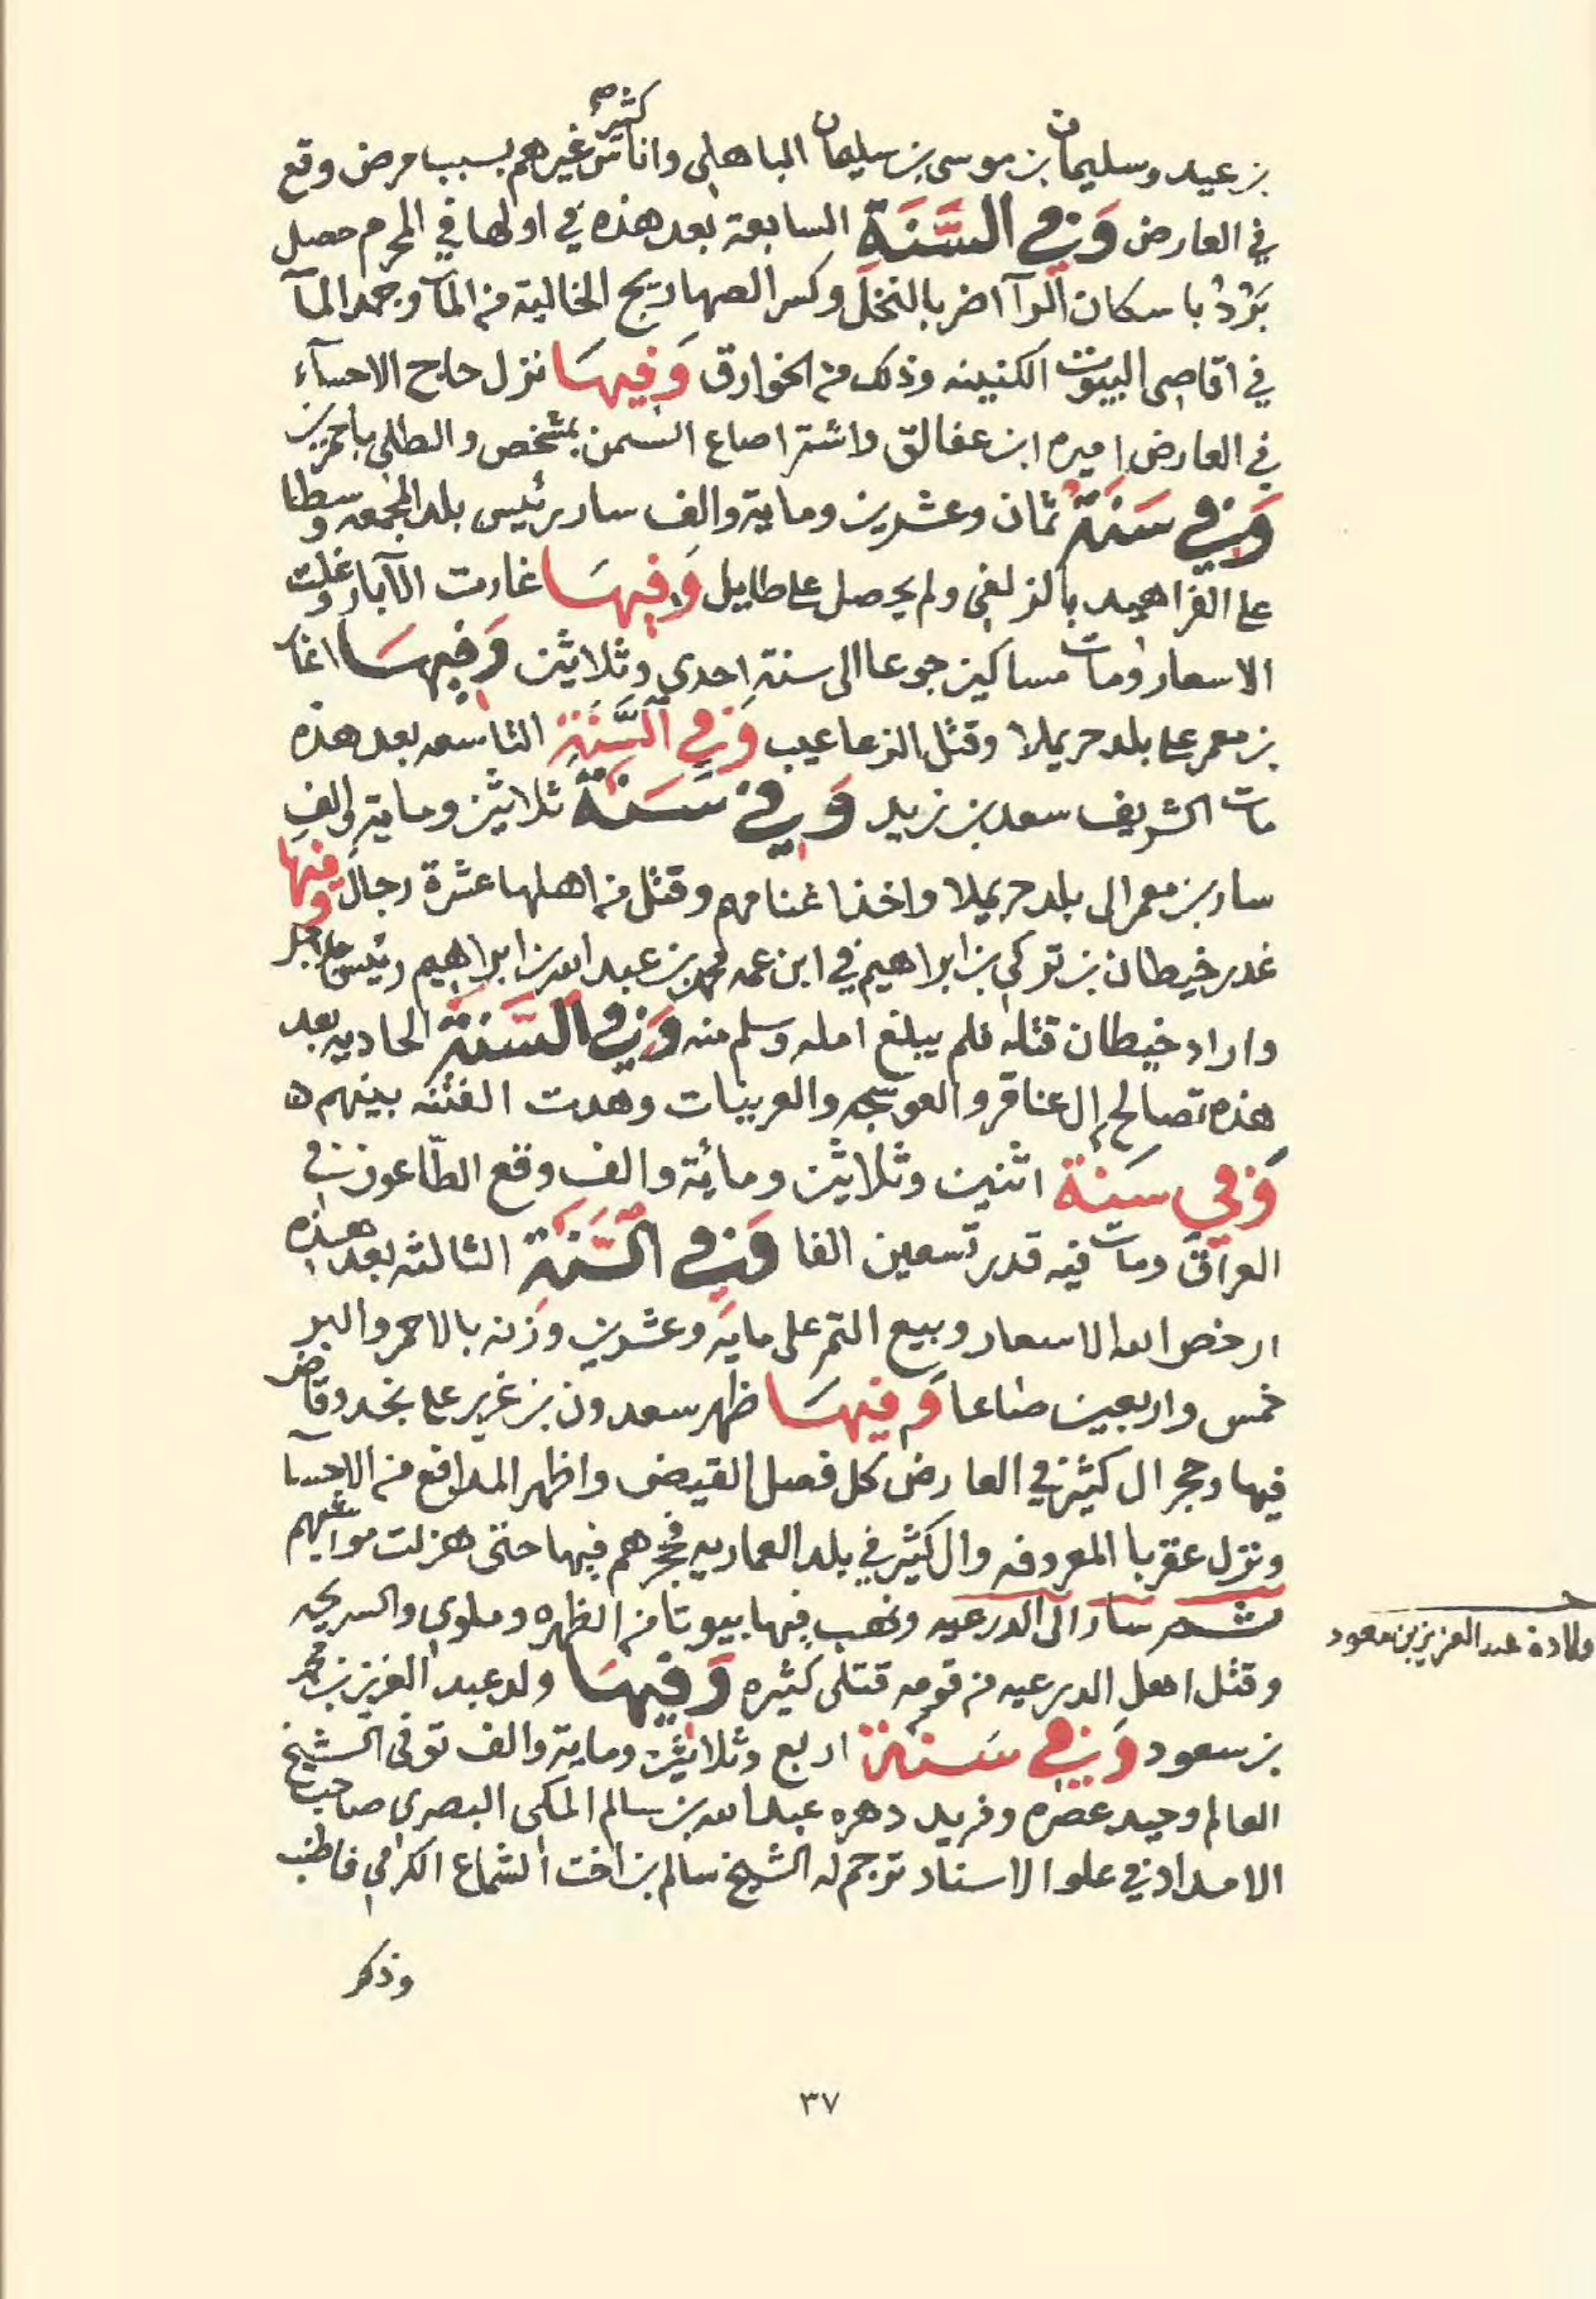 بن عيد وسليمان بن موسى بن سليمان الباهلي واناس كثير غيرهم بسبب مرض وقع
في العارض وفي السَّنَة السابعة بعد هذه في اولها في المحرم حصل
بَرَدُ باسكان الرآ اضر بالنخل وكسر الصهاريج الخالية من المآ وجمد المآ
في اقاصي البيوت الكنينه وذلك من الخوارق وَفيهَا نزل حاج الاحسآء
في العارض اميره ابن عفالق واشترا صاع السمن بمشخص والطلي باحمرين
وفي سَنَة ثمان وعشرين وماية والف سار رئيس بلد المجمعه وسطا
على الفراهيد بالزلفي ولم يحصل على طايل وَفيهَا غارت الآبار وغلت
الاسعار ومات مساكين جوعا الى سنة احدى وثلاثين وَفيهَا اغار
بن معمر على بلد حريملا وقتل الزعاعيب وَفي السَّنَة التاسعه بعد هذه
مات الشريف سعد بن زيد وَفي سَنَة ثلاثين وماية والف
سار بن معمر الى بلد حريملا واخذ اغنامهم وقتل من اهلها عشرة رجال وفيها
غدر خيطان بن تركي بن ابراهيم في ابن عمه محمد بن عبدالله بن ابراهيم رئيس جلاجل
واراد خيطان قتله فلم يبلغ امله وسلم منه وَفي السَّنَة الحاديه بعد
هذه تصالح ال عناقر والعوسجه والعرينات وهدت الفتنه بينهم ه
وَفي سَنَة اثنين وثلاثين ومائة والف وقع الطّاعون في
العراق ومات فيه قدر تسعين الفا وَفي السَّنَة الثالثه بعد هذه
ارخص الله الاسعار وبيع التمر على مايه وعشرين وزنه بالاحمر والبر
خمس واربعين صاعا وَفيهَا ظهر سعدون بن غرير على نجد وقاض
فيها وحجر ال كثير في العارض كل فصل القيض واظهر المدافع من الاحسآ
ونزل عقربا المعروفه وال كثير في بلد العماريه فحجرهم فيها حتى هزلت مواشيهم
ثم سار الى الدرعيه ونهب فيها بيوتا من الظهره وملوي والسريحه
وقتل اهل الدرعيه من قومه قتلى كثيره وَفيهَا ولد عبد العزيز بن محمد
بن سعود وَفي سَنَة اربع وثلاثين وماية والف توفى الشيخ
العالم وحيد عصره وفريد دهره عبدالله بن سالم المكي البصري صاحب
الامداد في علو الاسناد ترجم له الشيخ سالم بن اخت الشماع الكرامي فاطنب
وذكر
ولادة عبد العزيز بن سعود
٣٧